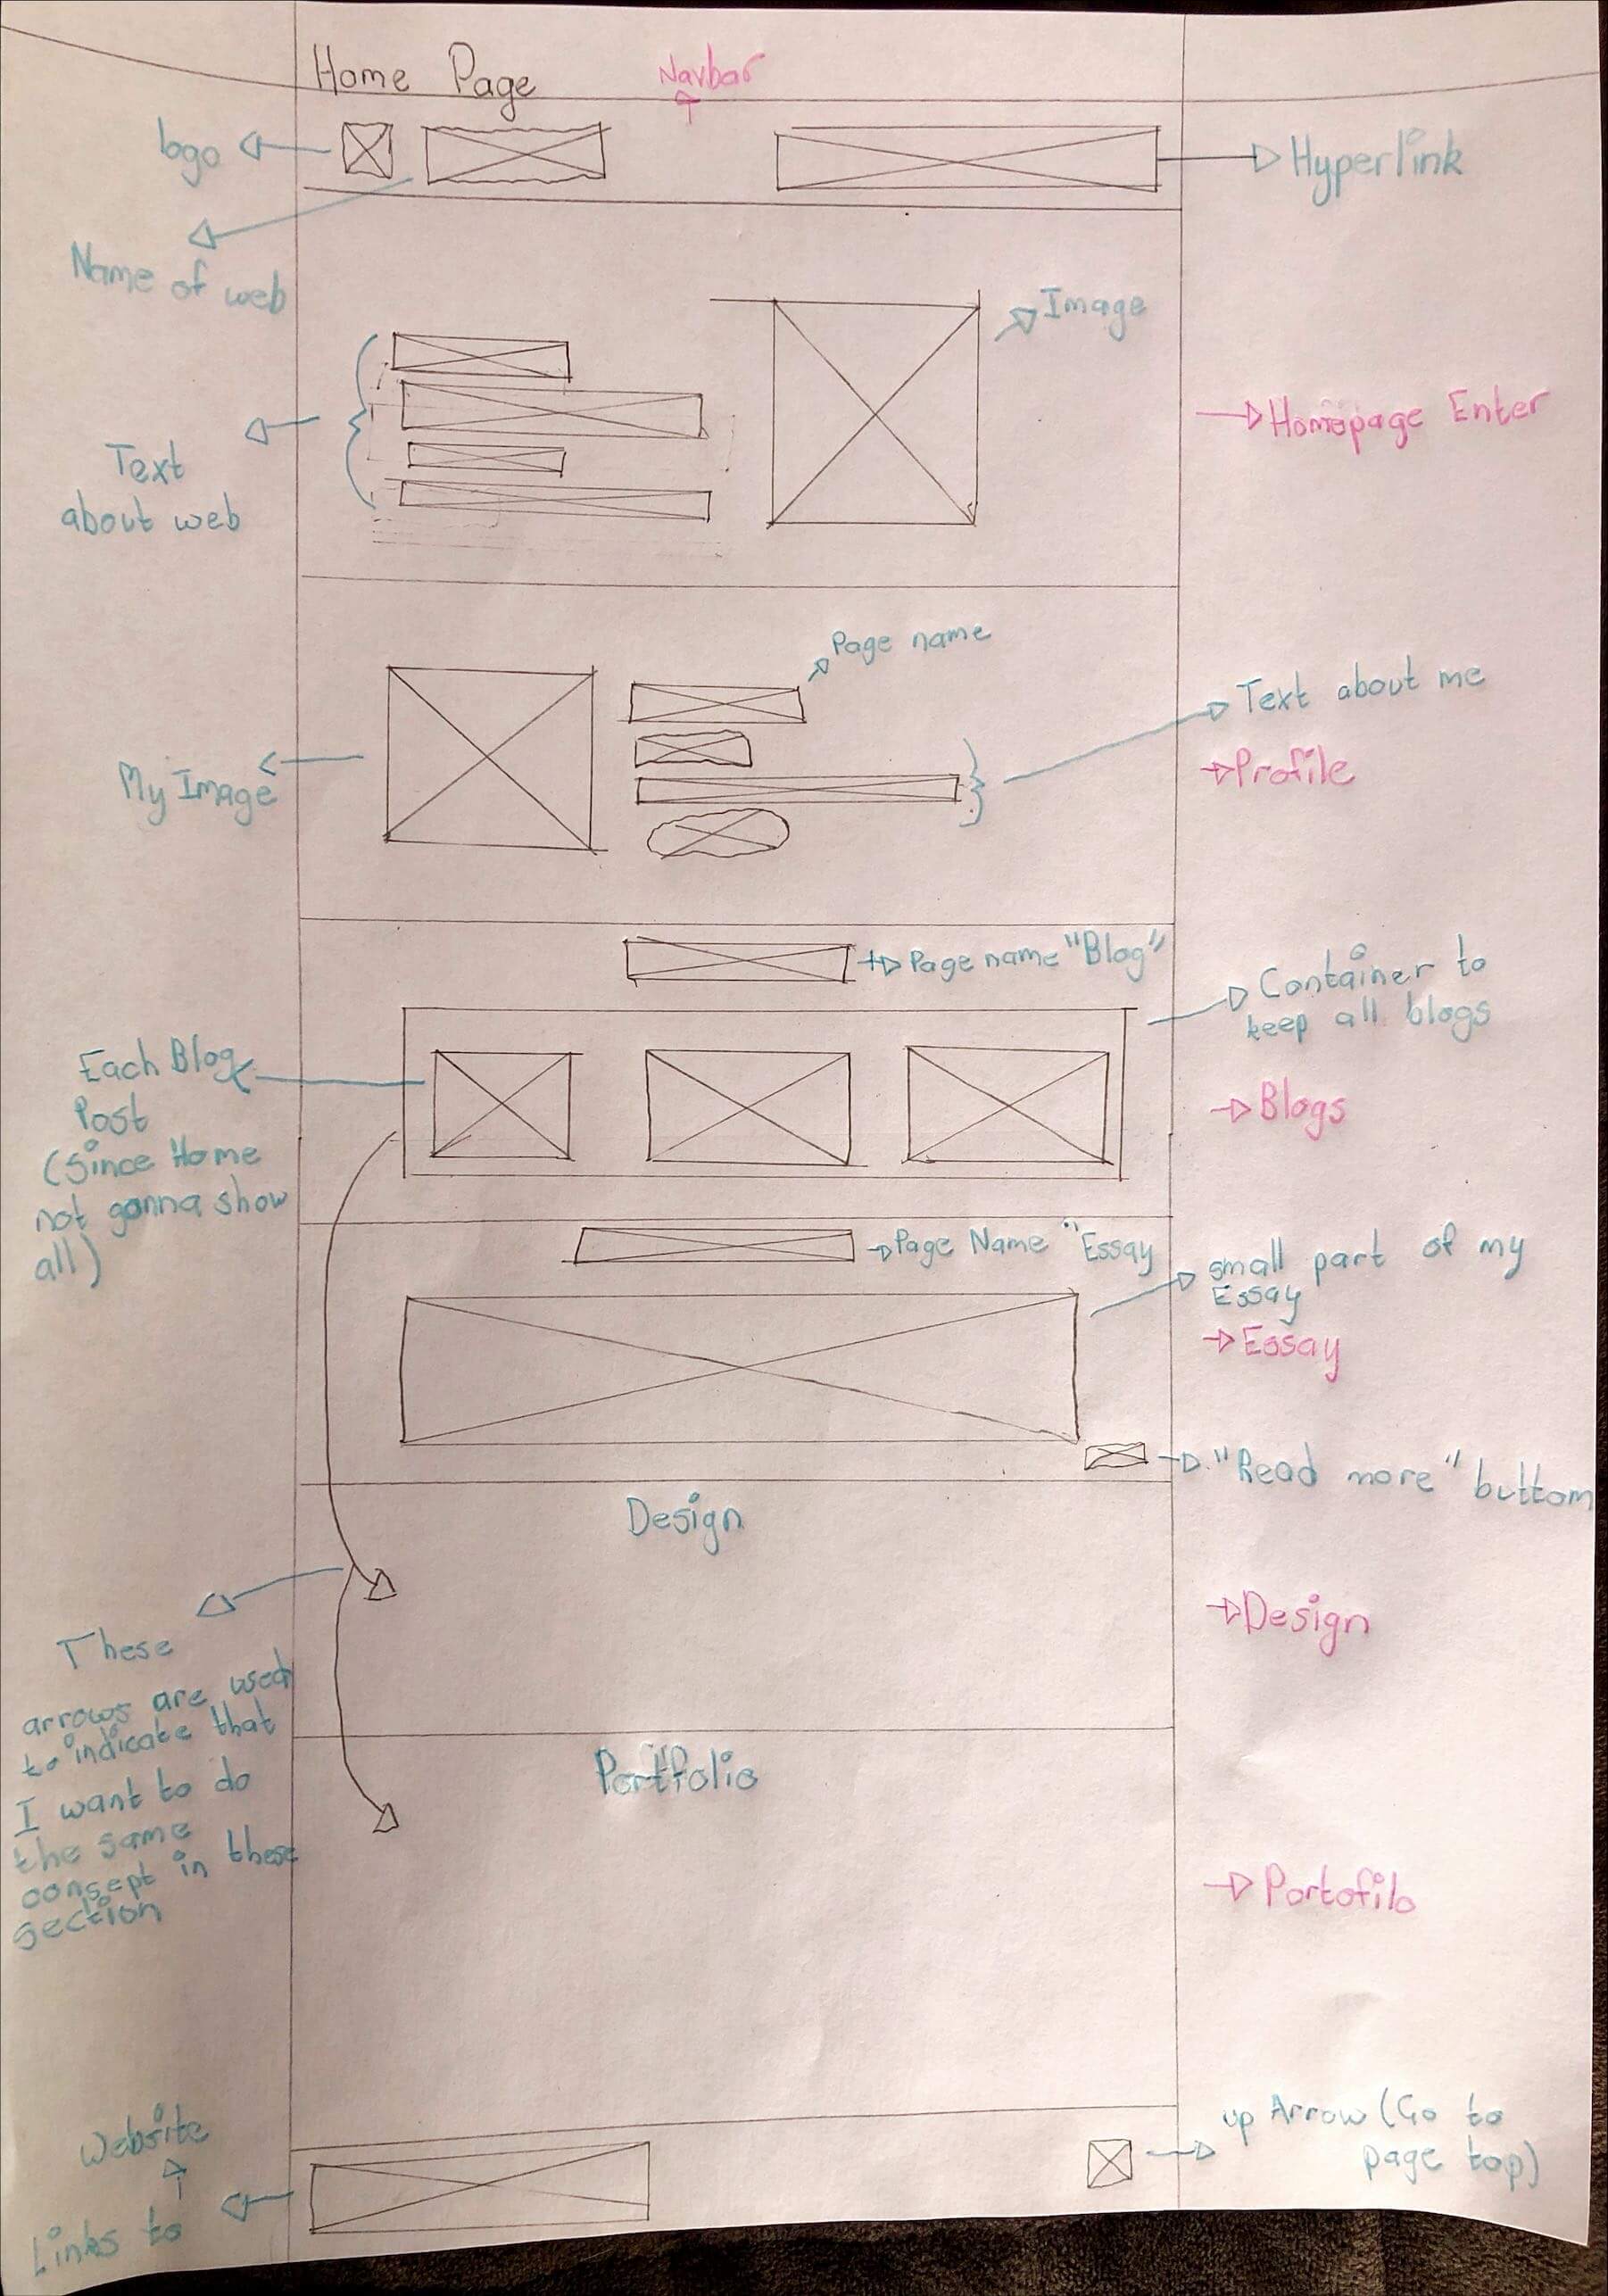 Home Page
Navbar
logo
Hyperlink
Name of web
Image
Homepage Enter
Text
about web
Page name
Text about me
Profile
My Image
Page name "Blog"
Container to
keep all blogs
Each Blog
Post
(Since Home
not gonna show
all)
Blogs
Page Name "Essay
small part of my
Essay
Essay
"Read more" buttom
Design
Design
These
arrows are used
to indicate that
I want to do
the same
consept in these
section
Portfolio
Portofilo
Website
Links to
up Arrow (Go to
page top)